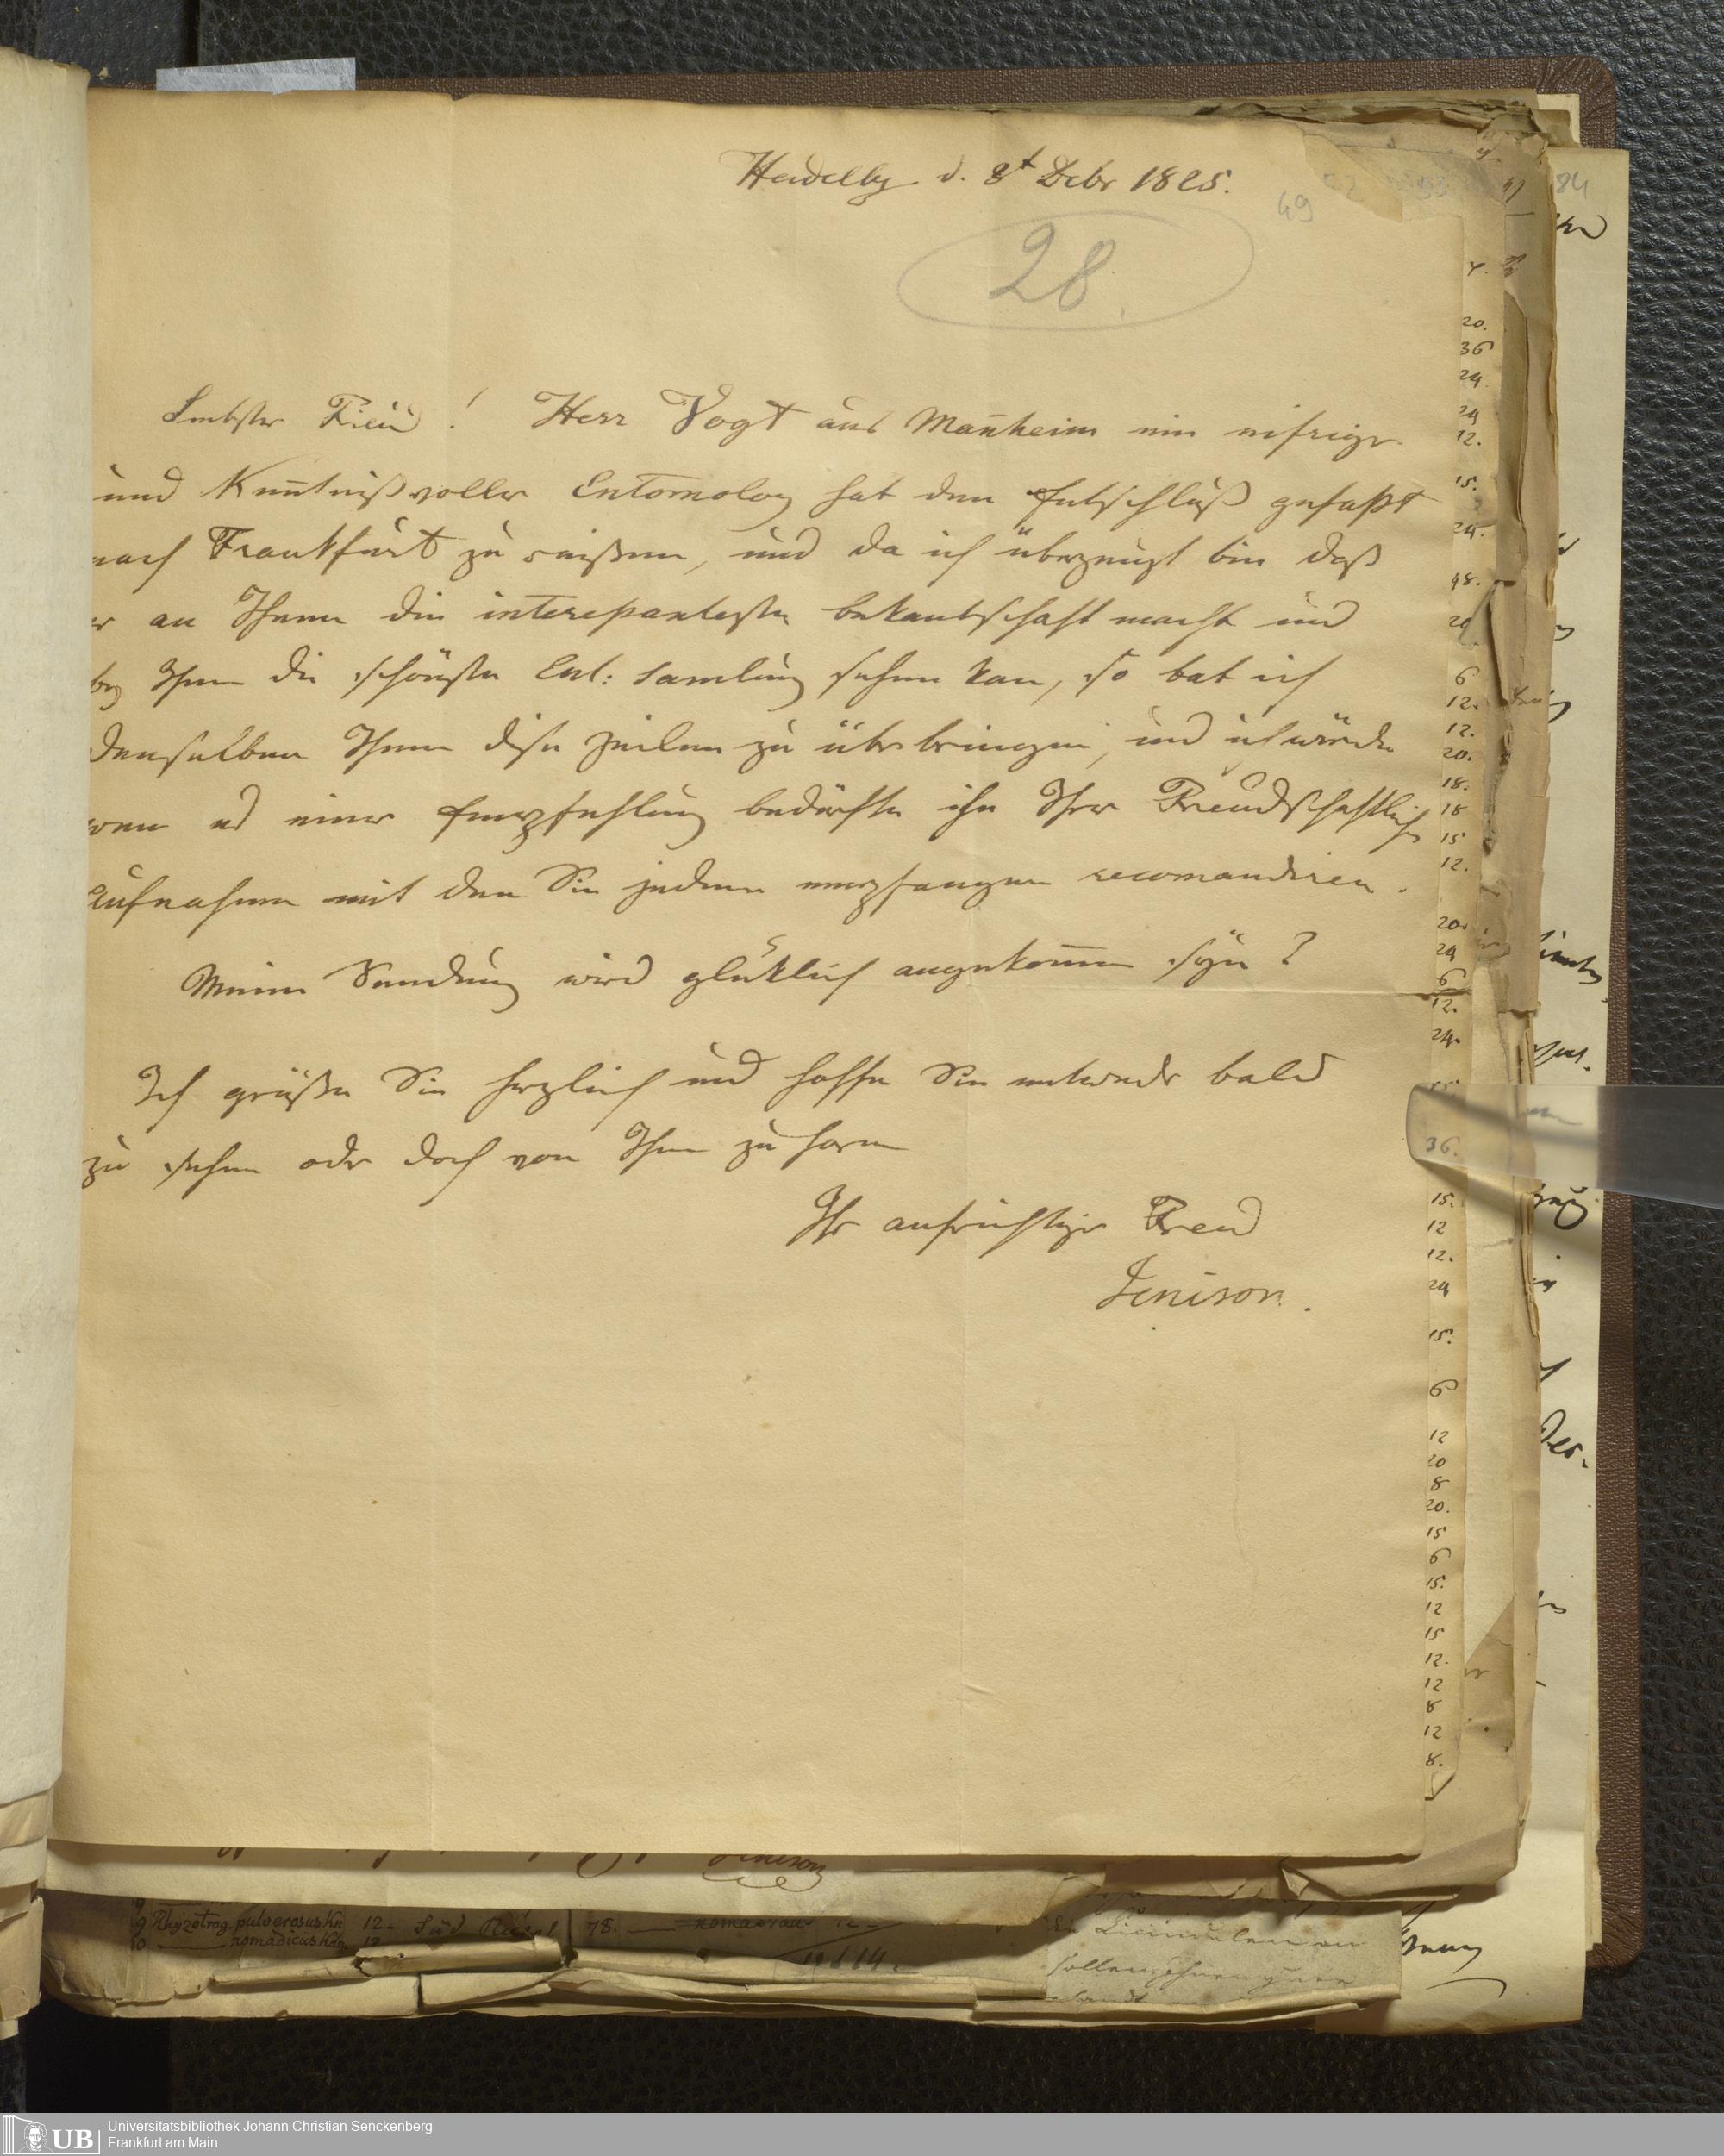 Heidelbg d. 8t Debr 1825.
49
84
28.
Liebster Freud! Herr Vogt aus Man̄heim ein eifriger
und Ken̄tnißvoller Entomolog hat den Entschluß gefaßt
nach Frankfurt zu reißen, und da ich überzeugt bin daß
er an Ihnen die interessanteste bekantschaft macht und
bey Ihnen die schönste Ent: Samlung sehen kan, so bat ich
denselben Ihnen diese Zeilen zu überbringen, und ich würde
wen es einer Empfehlung bedürfte ihn Ihrer Freudschaftlichen
Aufnahme mit der Sie jeden empfangen recomandiren.
Meine Sendung wird glüklich angekom̄en seyn?
Ich grüße Sie herzlich und hoffe Sie entweder bald
zu sehen oder doch von Ihnen zu hören
Ihr aufrichtiger Freud
Jenison.
20.
36
24.
24
12.
15.
24.
48.
20
6
12.
12.
20.
18.
18
15
12.
20.
24
6
12.
24.
36.
15.
12
12.
24
15.
6
12
20
8
20.
15
6
15.
12
15
12.
12
8
12
8.
Jenison
9 Rhyzotrog. pulverosus Kn 12-
10 nomadicus Kdn 12
78.
sollen
UB
Universitätsbibliothek Johann Christian Senckenberg
Frankfurt am Main